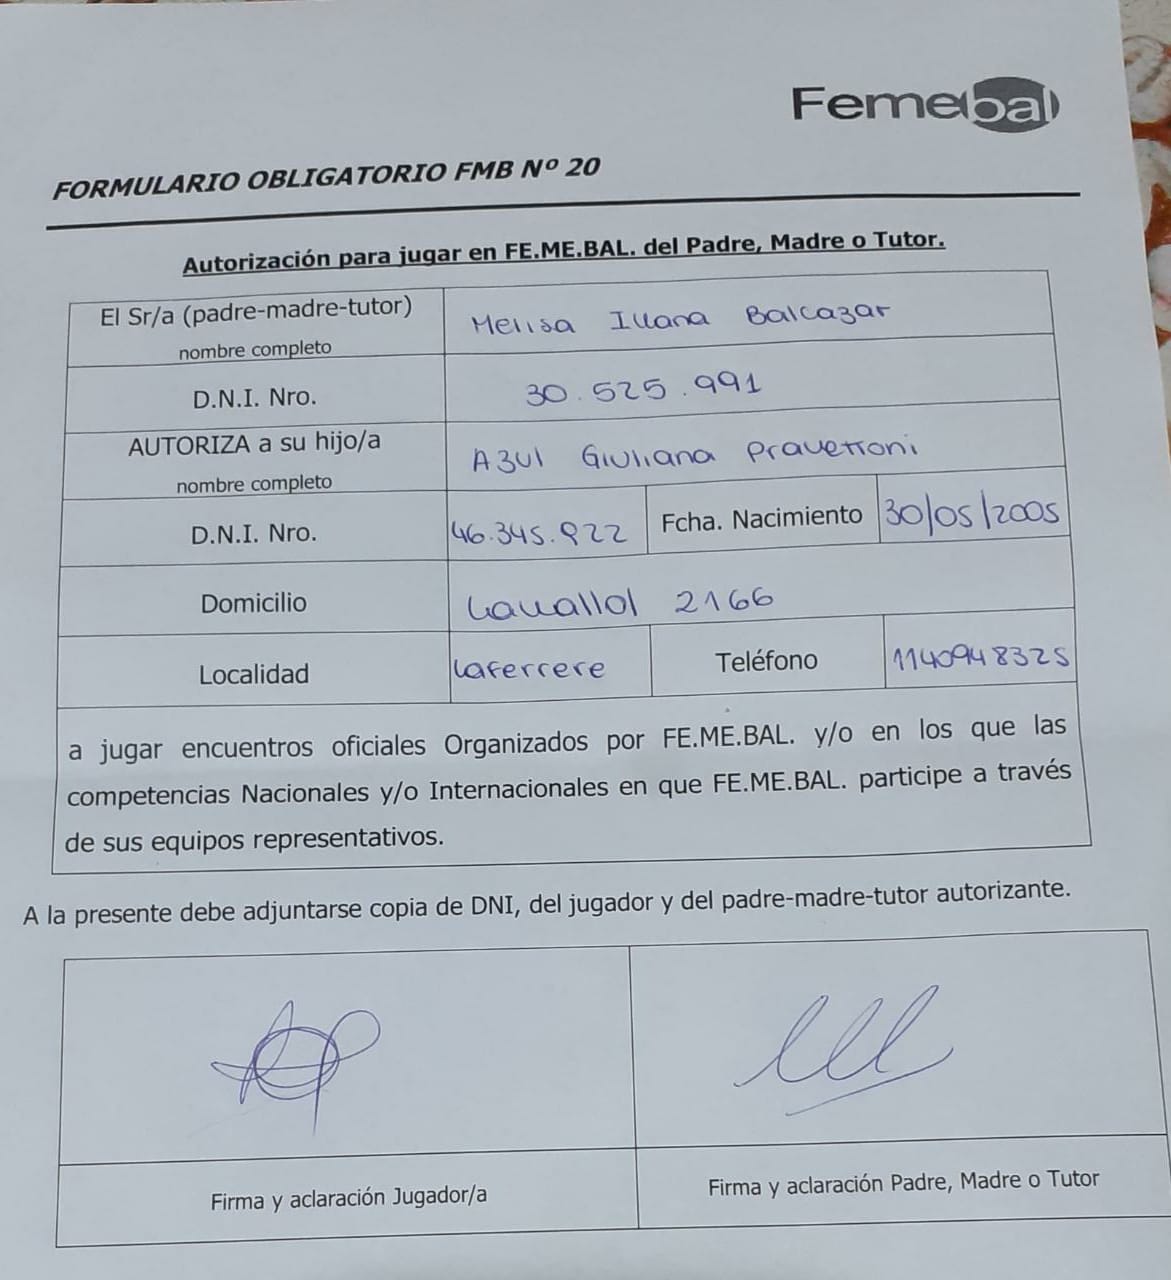 Femebal
FORMULARIO OBLIGATORIO FMB Nº 20
Autorización para jugar en FE.ME.BAL. del Padre, Madre o Tutor.
El Sr/a (padre-madre-tutor) Melisa Iliana Balcazar
nombre completo
D.N.I. Nro. 30.525.991
AUTORIZA a su hijo/a Azul Giuliana Pravettoni
nombre completo
D.N.I. Nro. 46.345.922 Fcha. Nacimiento 30/05/2005
Domicilio 2166
Localidad Laferrere Teléfono 1140948325
a jugar encuentros oficiales Organizados por FE.ME.BAL. y/o en los que las
competencias Nacionales y/o Internacionales en que FE.ME.BAL. participe a través
de sus equipos representativos.
A la presente debe adjuntarse copia de DNI, del jugador y del padre-madre-tutor autorizante.
Firma y aclaración Jugador/a Firma y aclaración Padre, Madre o Tutor